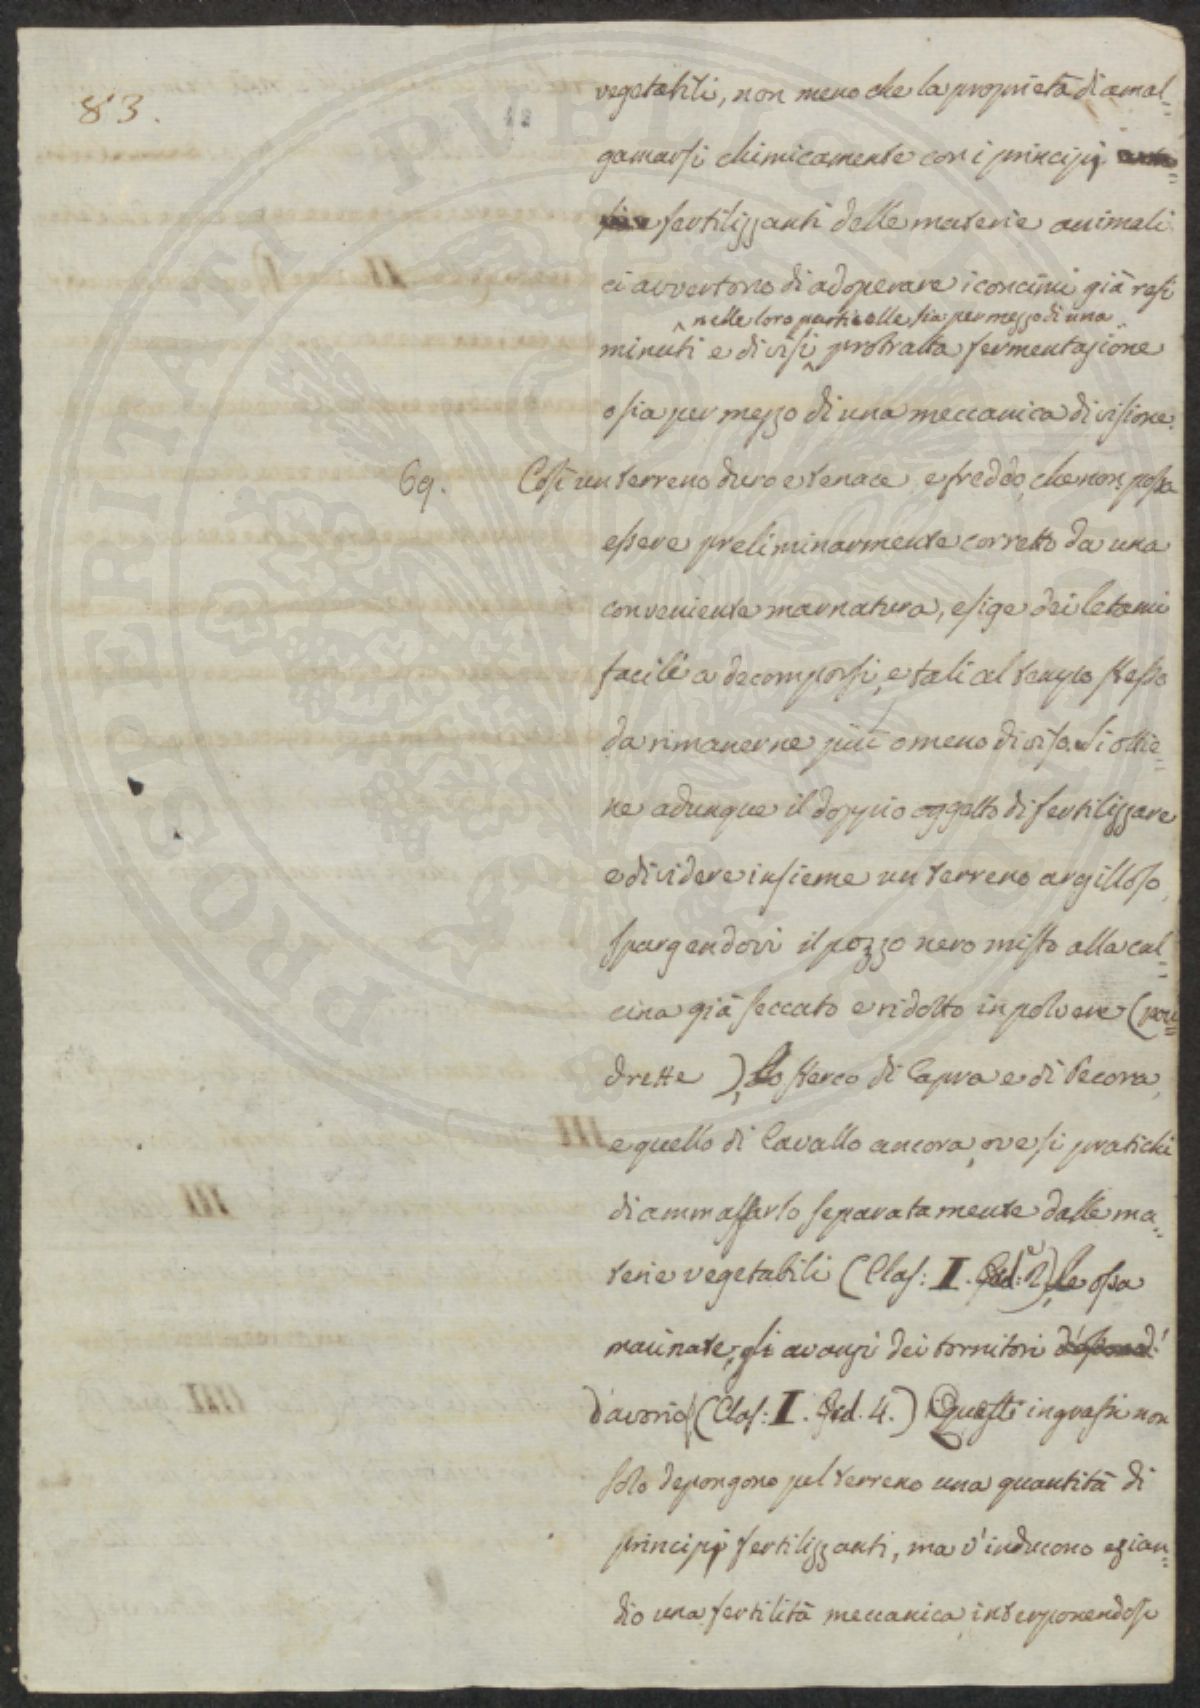 83.
vegetabili, non meno che la proprietà di amal=
gamarsi chimicamente con i principj
fertilizzanti delle materie animali
ci avvertono di adoperare i concimi già resi
nelle loro particelle sia per mezzo di una
minuti e divisi protratta fermentazione
o sia per mezzo di una meccanica divisione.
69. Così un terreno duro e tenace e freddo, che non possa
essere preliminarmente corretto da una
conveniente marnatura, esige dei letami
facili a decomporsi, e tali al tempo stesso
da rimanerne più o meno diviso. Si ottie=
ne adunque il doppio oggetto di fertilizzare
e dividere insieme un terreno argilloso,
spargendovi il pozzo nero misto alla cal=
cina già seccato e ridotto in polvere (pou=
drette), lo sterco di Capra e di Pecora,
e quello di Cavallo ancora, ove si pratichi
di ammassarlo separatamente dalle ma=
terie vegetabili (Clas: I. Ord: 2), le ossa
macinate, gli avanzi dei tornitori
d'avorio (Clas: I. Ord. 4.) Questi ingrassi non
solo depongono pel terreno una quantità di
principj fertilizzanti, ma v'inducono ezian=
dio una fertilità meccanica, interponendosi
PROSPERITATI PVBLICAE